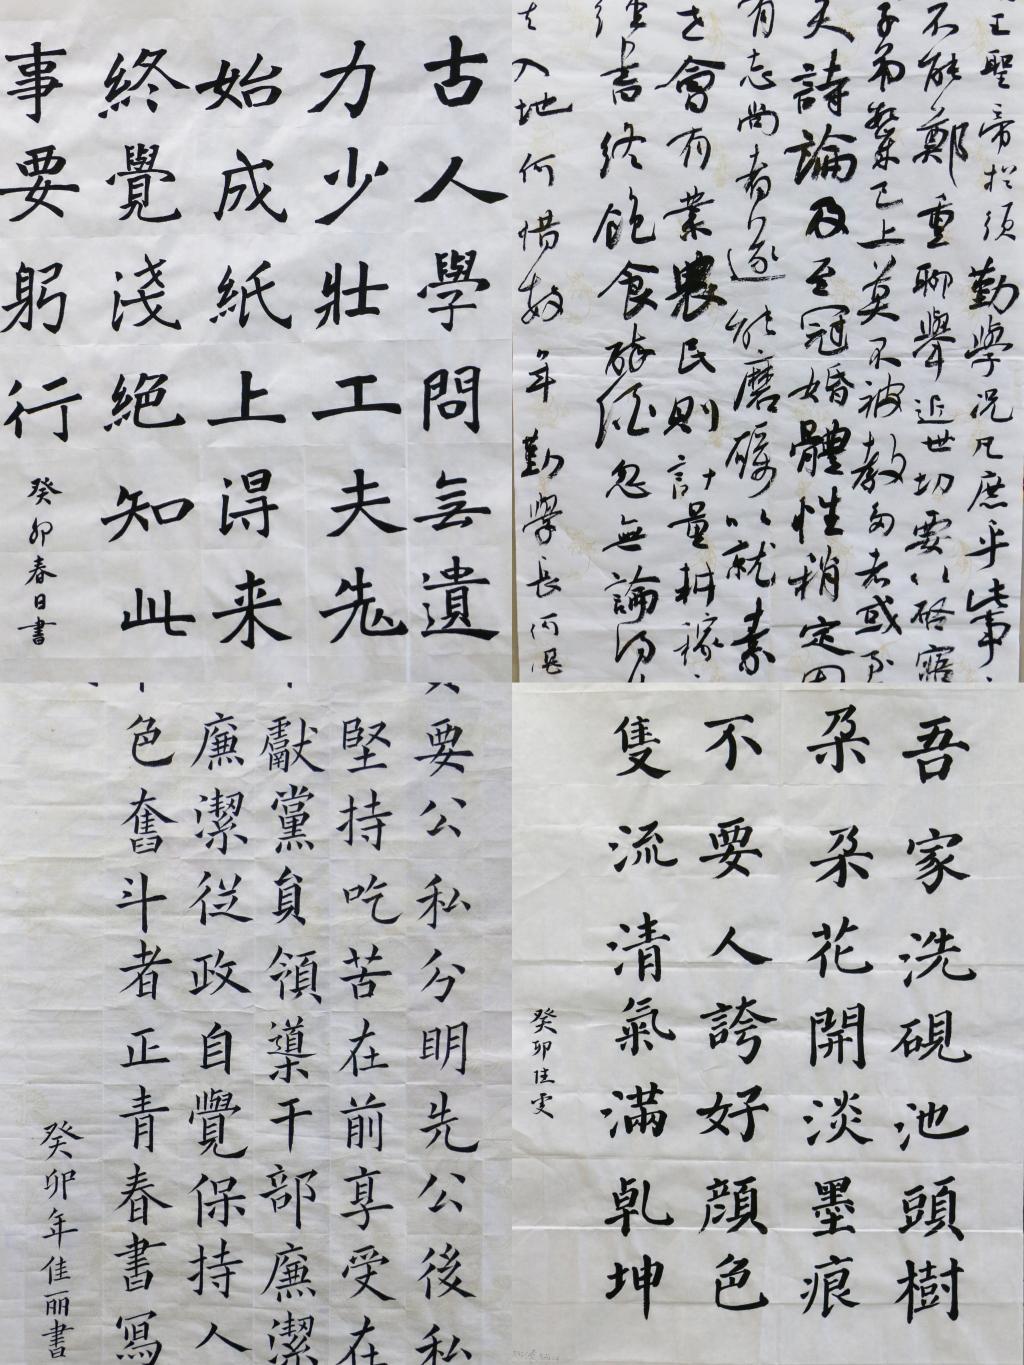 古人學問無遺
力少壯工夫老
始成紙上得来
終覺淺絕知此
事要躬行
癸卯春日書
王聖帝於須勤學況凡庶乎此事
不能鄭重聊舉近世切要以啓寤
子弟輩已上莫不被教多者或至
詩論及至冠婚體性稍定因
有志尚者遂能磨礪以就素
世會有業農民則計量耕稼
終飽食醉酒忽無論
入地何惜數年勤學長
要公私分明先公後私
堅持吃苦在前享受在
獻黨員領導干部廉潔
廉潔從政自覺保持人
色奮斗者正青春書寫
癸卯年佳丽書
吾家洗硯池頭樹
朵朵花開淡墨痕
不要人誇好顏色
隻流清氣滿乾坤
癸卯佳雯